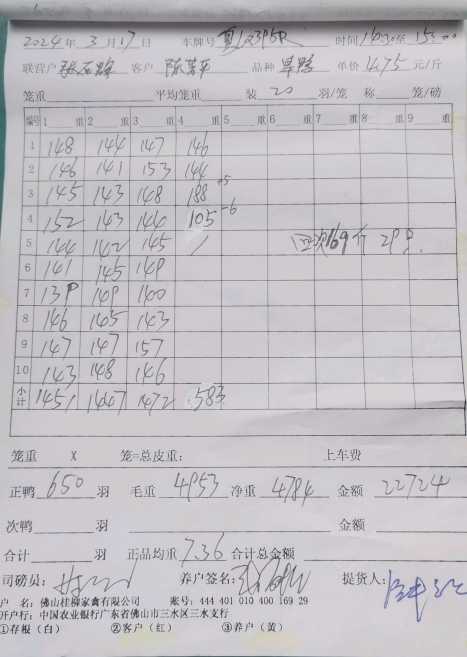 2024年3月17日 车牌号 粤 时间 至
联营户 客户 陈 品种 单价 4.75 元/斤
笼重 平均笼重 装 20 羽/笼 称 笼/磅
编号 1 重 2 重 3 重 4 重 5 重 6 重 7 重 8 重 9 重
1 148 144 147 146
2 146 141 153 144
3 145 143 148 188 +5
4 152 143 144 105 -6
5 144 142 145 / 169斤 29只
6 141 145 149
7 139 149 140
8 146 145 143
9 147 147 157
10 143 148 146
小计 1451 1447 1472 583
笼重 X 笼=总皮重: 上车费
正鸭 650 羽 毛重 4953 净重 4784 金额 22724
次鸭 羽 金额
合计 羽 正品均重 7.36 合计总金额
司磅员: 养户签名: 提货人:
户 名: 佛山桂柳家禽有限公司 账号: 444 401 010 400 169 29
开户行: 中国农业银行广东省佛山市三水区三水支行
①存根(白) ②客户(红) ③养户(黄)